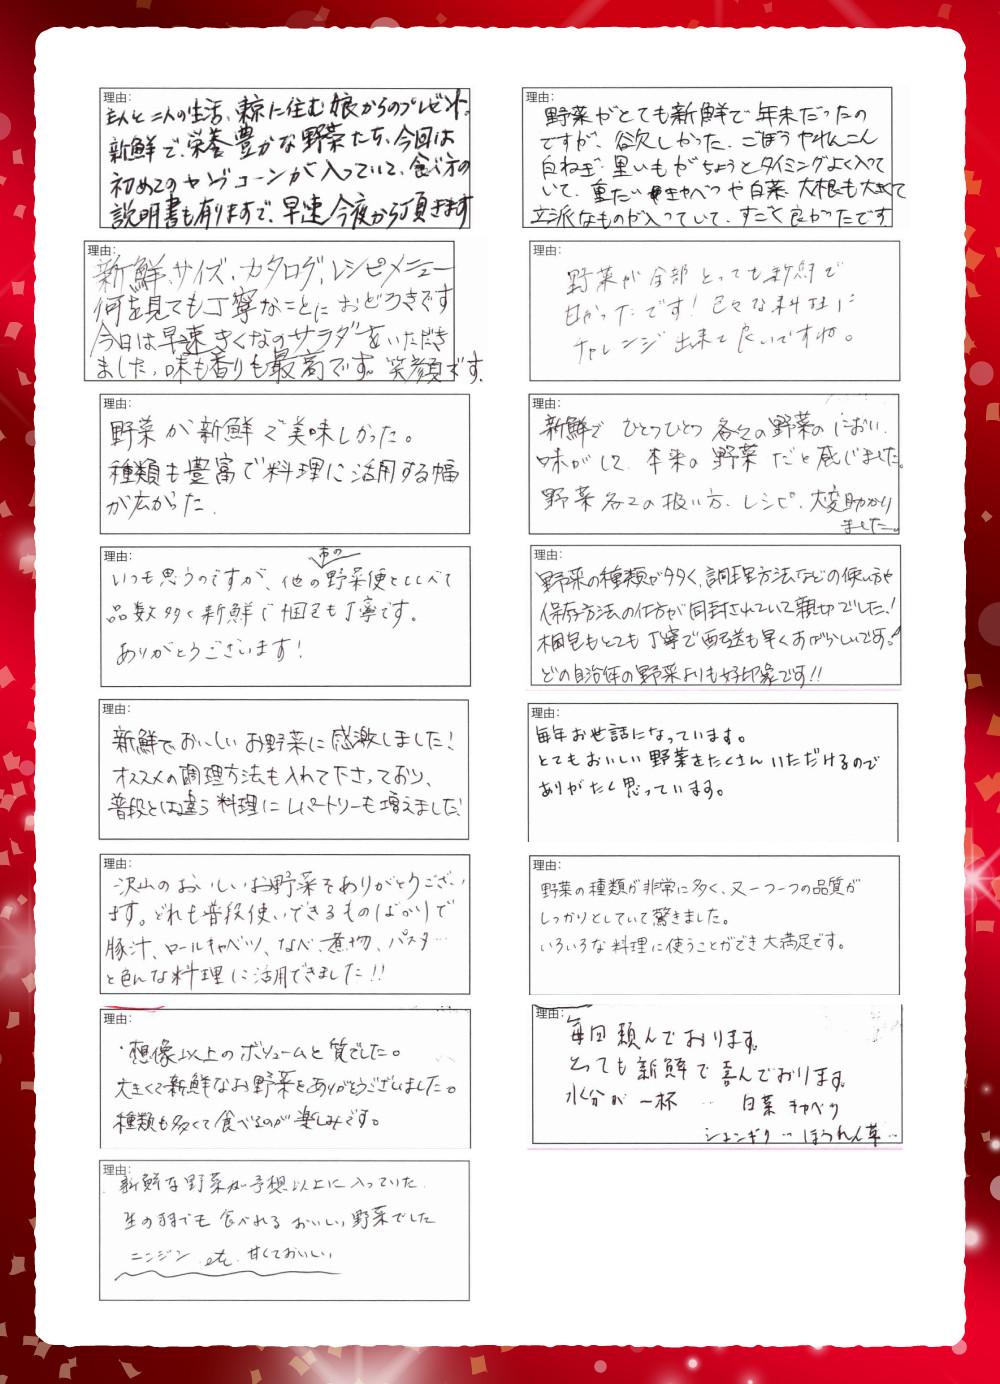 理由:
主人と二人の生活、東京に住む娘からのプレゼント。
新鮮で、栄養豊かな野菜たち、今回は
初めてのヤングコーンが入っていて、食べ方の
説明書も有りますで、早速今夜から頂きます
理由:
新鮮、サイズ、カタログ、レシピメニュー
何を見ても丁寧なことにおどろきです
今日は早速きくなのサラダをいただき
ました。味も香りも最高です。笑顔です。
理由:
野菜が新鮮で美味しかった。
種類も豊富で料理に活用する幅
が広がった.
理由:
いつも思うのですが、他の市の野菜便とくらべて
品数多く新鮮で梱包も丁寧です。
ありがとうございます!
理由:
新鮮でおいしいお野菜に感激しました!
オススメの調理方法も入れて下さっており、
普段とは違う料理にレパートリーも増えました!
理由:
沢山のおいしいお野菜をありがとうござい
ます。どれも普段使いできるものばかりで
豚汁、ロールキャベツ、なべ、煮物、パスタ…
と色んな料理に活用できました!!
理由:
想像以上のボリュームと質でした。
大きくて新鮮なお野菜をありがとうございました。
種類も多くて食べるのが楽しみです。
理由:
新鮮な野菜が予想以上に入っていた
生のままでも食べれるおいしい野菜でした
ニンジン etc. 甘くておいしい
理由:
野菜がとても新鮮で年末だったの
ですが、欲しかった、ごぼうやれんこん
白ねぎ、里いもがちょうどタイミングよく入って
いて、重たいキャベツや白菜、大根も大きくて
立派なものが入っていて、すごく良かったです
理由:
野菜が全部とっても新鮮で
甘かったです!色々な料理に
チャレンジ出来て良いですね。
理由:
新鮮でひとつひとつ各々の野菜のにおい、
味がして、本来の野菜だと感じました。
野菜各々の扱い方、レシピ、大変助かり
ました。
理由:
野菜の種類が多く、調理方法などの使い方や
保存方法の仕方が同封されていて親切でした!
梱包もとても丁寧で配送も早くすばらしいです!
どの自治体の野菜よりも好印象です!!
理由:
毎年お世話になっています。
とてもおいしい野菜をたくさんいただけるので
ありがたく思っています。
理由:
野菜の種類が非常に多く、又一つ一つの品質が
しっかりとしていて驚きました。
いろいろな料理に使うことができ大満足です。
理由:
毎回頼んでおります。
とっても新鮮で喜んでおります。
水分が一杯 … 白菜 キャベツ
シュンギク … ほうれん草…